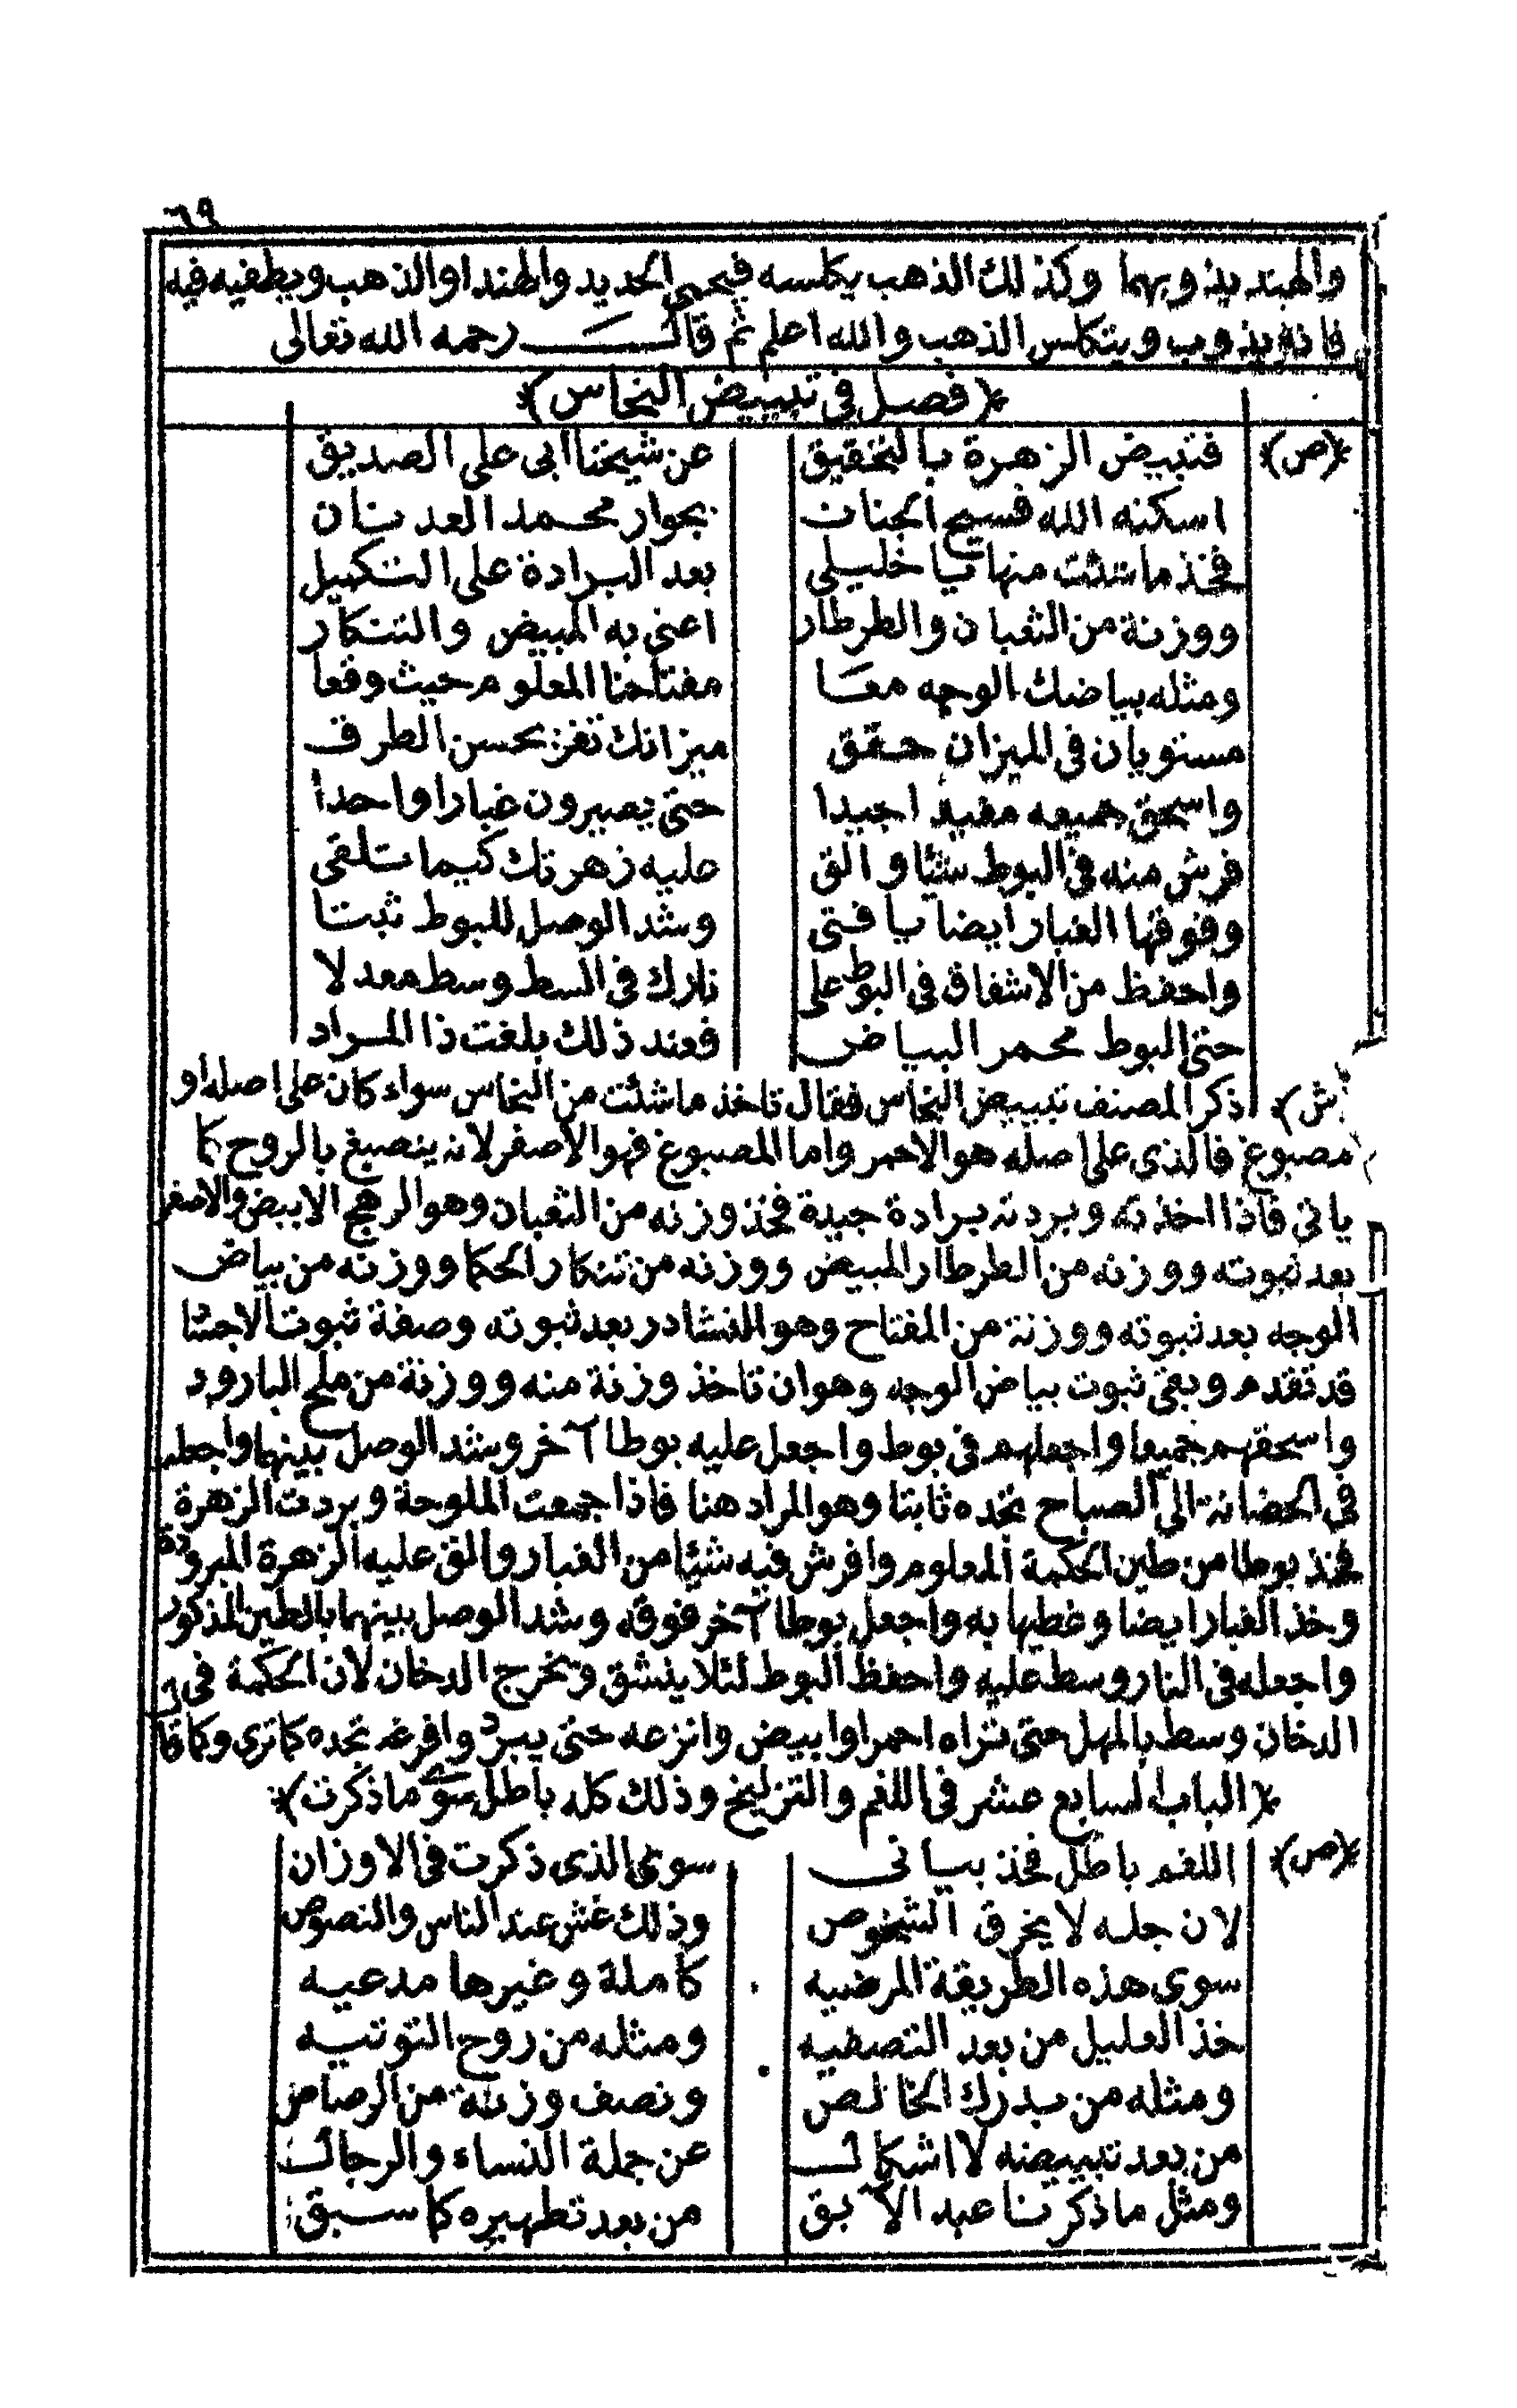 ٦٩
والهند يذوبهما وكذلك الذهب يكلسه فيحمى الحديد والهند اوالذهب ويطفيه فيه
فانه يذوب ويتكلس الذهب والله اعلم ثم قال رحمه الله تعالى
﴿فصل فى تبييض النحاس﴾
﴿ص﴾ فتبييض الزهرة بالتحقيق عن شيخنا ابى على الصديق
اسكنه الله فسيح الجنان بجوار محمد العدنان
فخذ ما شئت منها يا خليلى بعد البرادة على التكميل
ووزنة من الثعبان والطرطار اعنى به المبيض والتنكار
ومثله بياضك الوجه معا مفتاحنا المعلوم حيث وقعا
مستويان فى الميزان حقق ميزانك تفز بحسن الطرف
واسحق جميعه مفيدا جيدا حتى يصيرون غبارا واحدا
فرش منه فى البوط شئيا والق عليه زهرتك كيما تلقى
وفوقها الغبار ايضا يا فتى وشد الوصل للبوط ثبتا
واحفظ من الاشفاق فى البوط على نارك فى السط وسط معدلا
حتى البوط محمر البياض فعند ذلك بلغت ذا المراد
﴿ش﴾ ذكر المصنف تبييض النحاس فقال تاخذ ما شئت من النحاس سواء كان على اصله او
مصبوغ فالذى على اصله هو الاحمر واما المصبوغ فهو الاصفر لانه ينصبغ بالروح كما
ياتى فاذا اخذته وبردته برادة جيدة فخذ وزنه من الثعبان وهو الرهج الابيض والاصفر
بعد ثبوته ووزنه من الطرطار المبيض ووزنه من تنكار الحكما ووزنه من بياض
الوجه بعد ثبوته ووزنة من المفتاح وهو النشادر بعد ثبوته وصفة ثبوت الاجسا
قد تقدم وبقى ثبوت بياض الوجه وهو ان تاخذ وزنة منه ووزنة من ملح البارود
واسحقهم جميعا واجعلهم فى بوط واجعل عليه بوطا آخر وشد الوصل بينهما واجعله
فى الحضانة الى الصباح تجده ثابتا وهو المراد هنا فاذا جمعت الملوحة وبردت الزهرة
فخذ بوطا من طين الحكمة المعلوم وافرش فيه شئيا من الغبار والق عليه الزهرة المبرودة
وخذ الغبار ايضا وغطيها به واجعل بوطا آخر فوقه وشد الوصل بينهما بالطين المذكور
واجعله فى النار وسط عليه واحفظ البوط لئلا ينشق وتخرج الدخان لان الحكمة فى
الدخان وسط بالمهل حتى تراه احمر اوابيض وانزعه حتى يبرد وافرغه تجده كما ترى وكما قا
﴿الباب السابع عشر فى اللغم والتزليخ وذلك كله باطل سوى ما ذكرت﴾
﴿ص﴾ اللغم باطل فخذ بيانى سوى الذى ذكرت فى الاوزان
لان جله لا يخرق الشخوص وذلك غش عند الناس والنصوص
سوى هذه الطريقة المرضيه كاملة وغيرها مدعيه
خذ العليل من بعد التصفيه ومثله من روح التوتيه
ومثله من بدرك الخالص ونصف وزنه من الرصاص
من بعد تبييضه لا اشكال عن جملة النساء والرجال
ومثل ما ذكرنا عبد الآبق من بعد تطهيره كما سبق